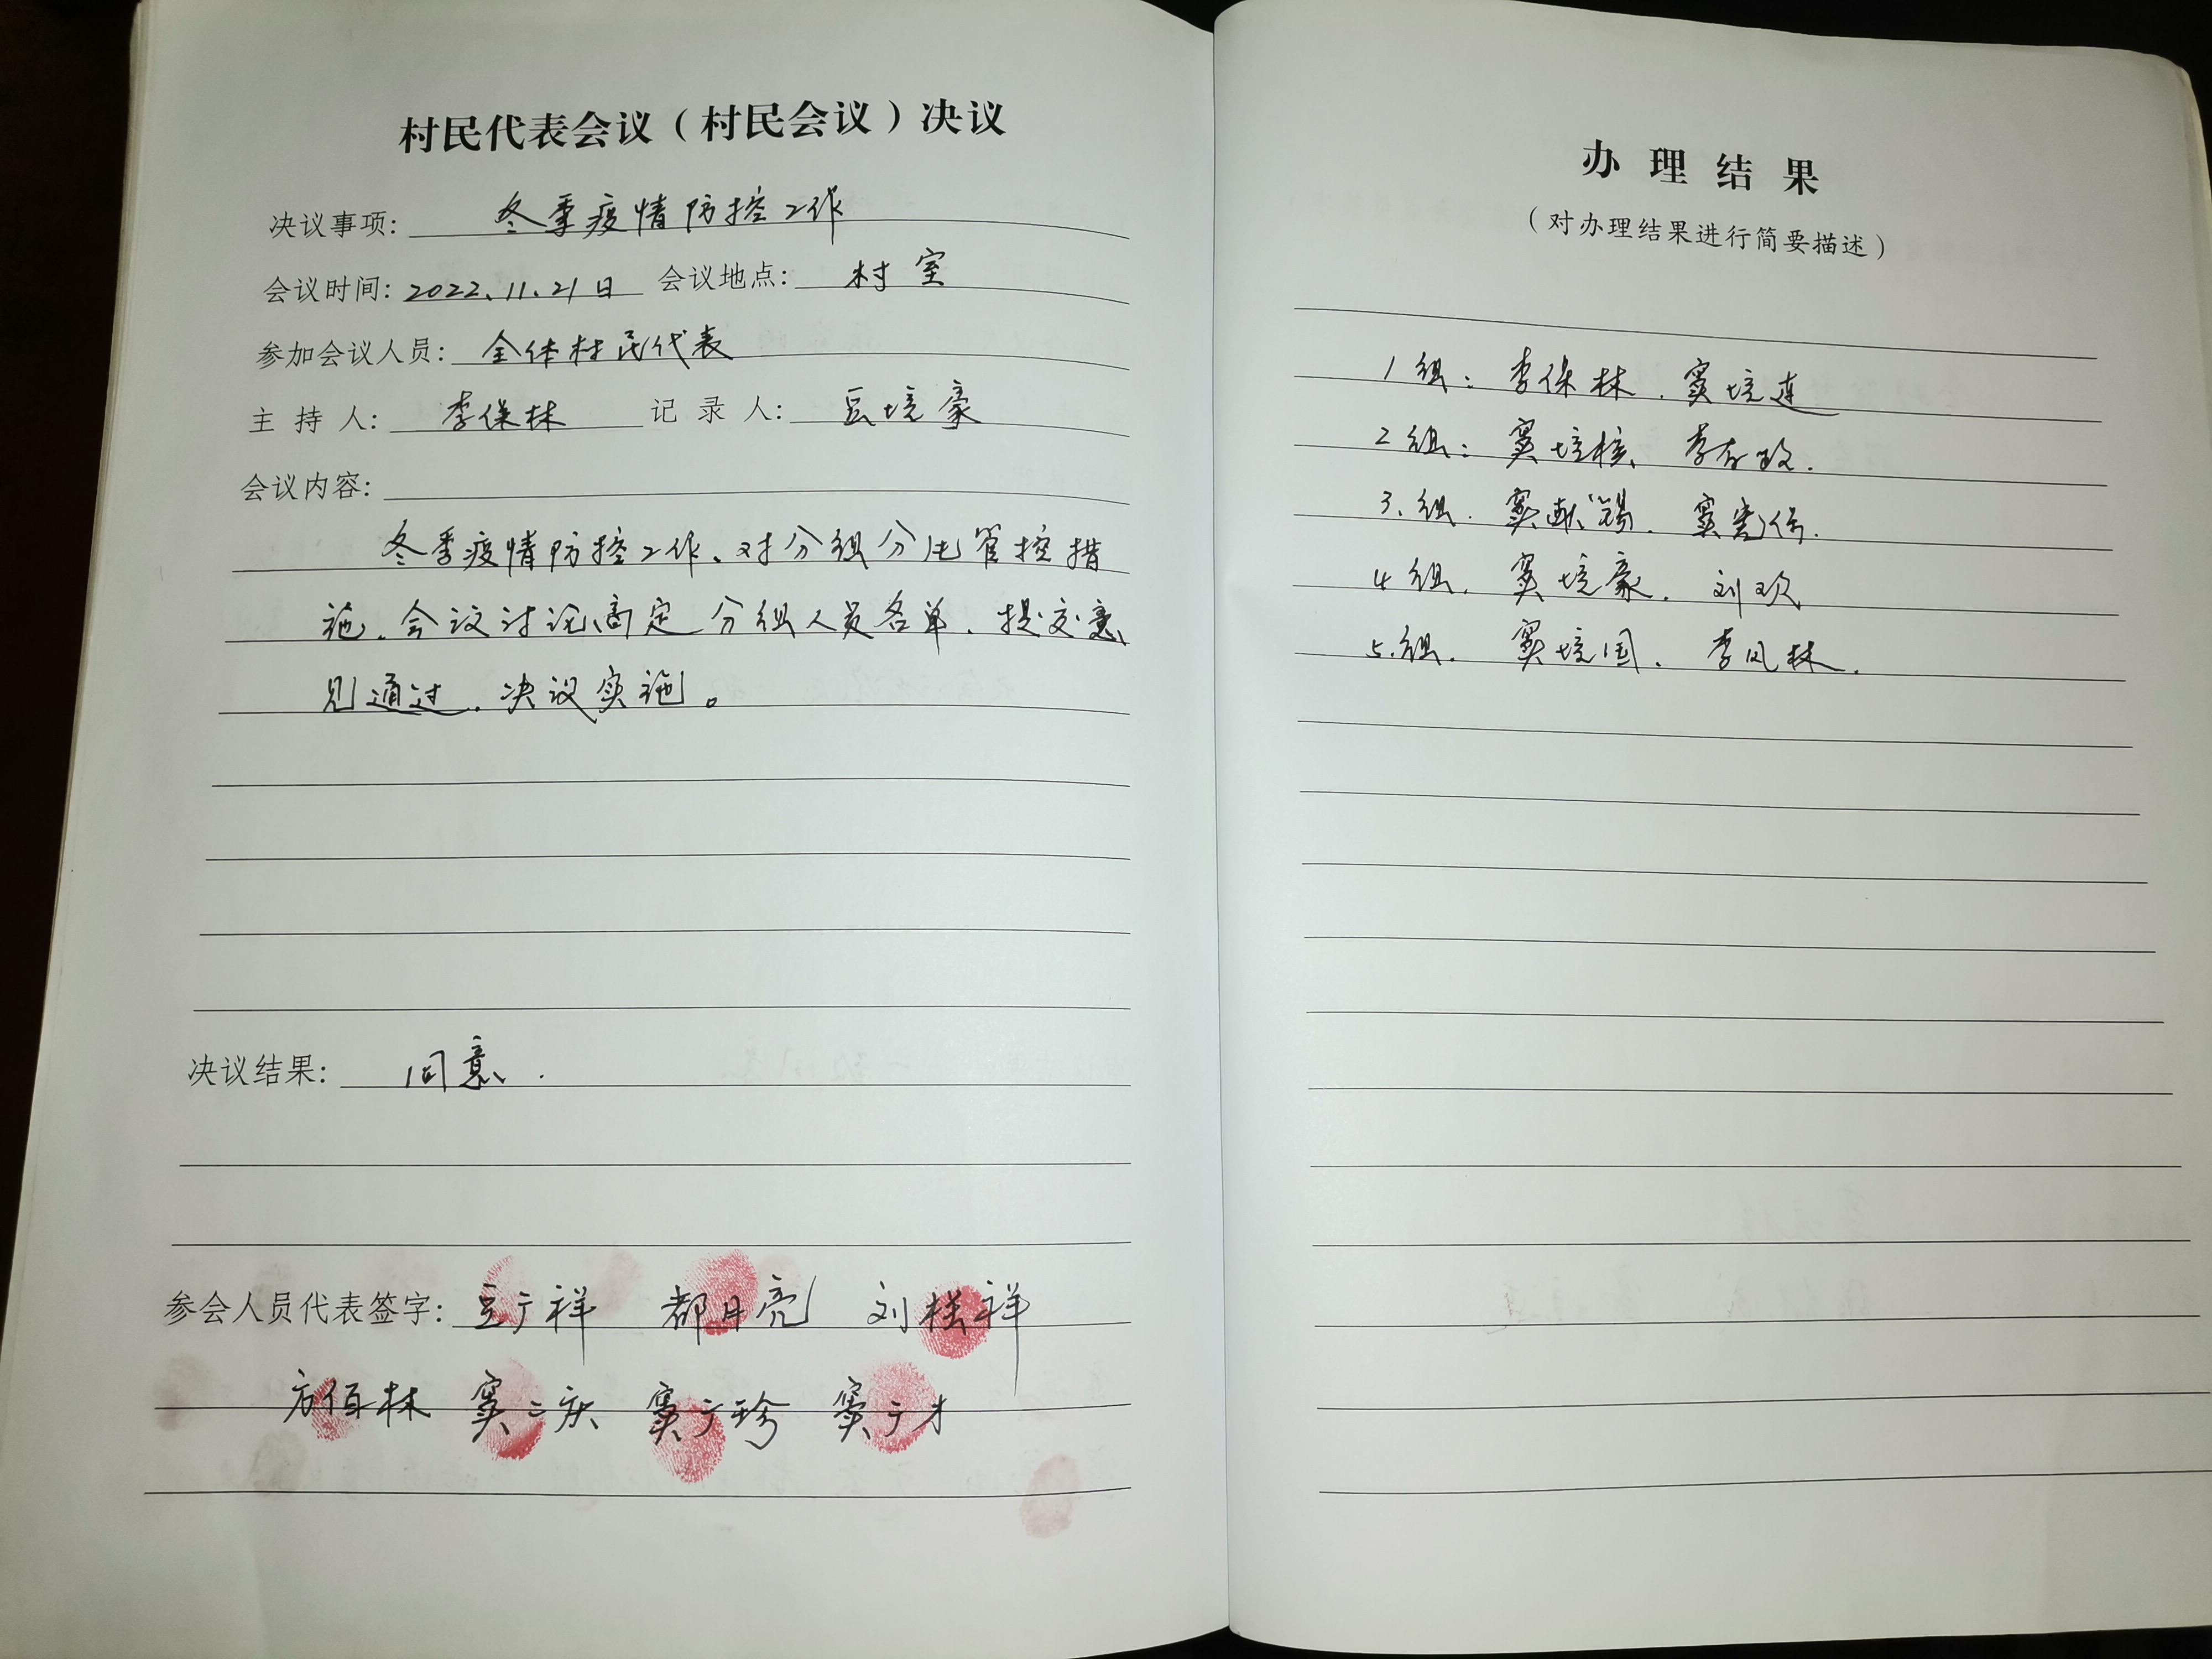 村民代表会议（村民会议）决议
决议事项: 冬季疫情防控工作
会议时间: 2022.11.21日 会议地点: 村室
参加会议人员: 全体村民代表
主持人: 李保林 记录人: 豆境豪
会议内容:
冬季疫情防控工作、对分组分片管控措
施，会议讨论商定分组人员名单，提交意
见通过，决议实施。
决议结果: 同意.
参会人员代表签字: 豆广祥 都月亮 刘样祥
方佰林 窦二庆 窦广珍 窦广才
办理结果
（对办理结果进行简要描述）
1组: 李保林. 窦境连
2组: 窦境核、李存政.
3、组. 窦献锡. 窦宪信.
4组. 窦境豪. 刘欢
5.组. 窦境国. 李凤林.